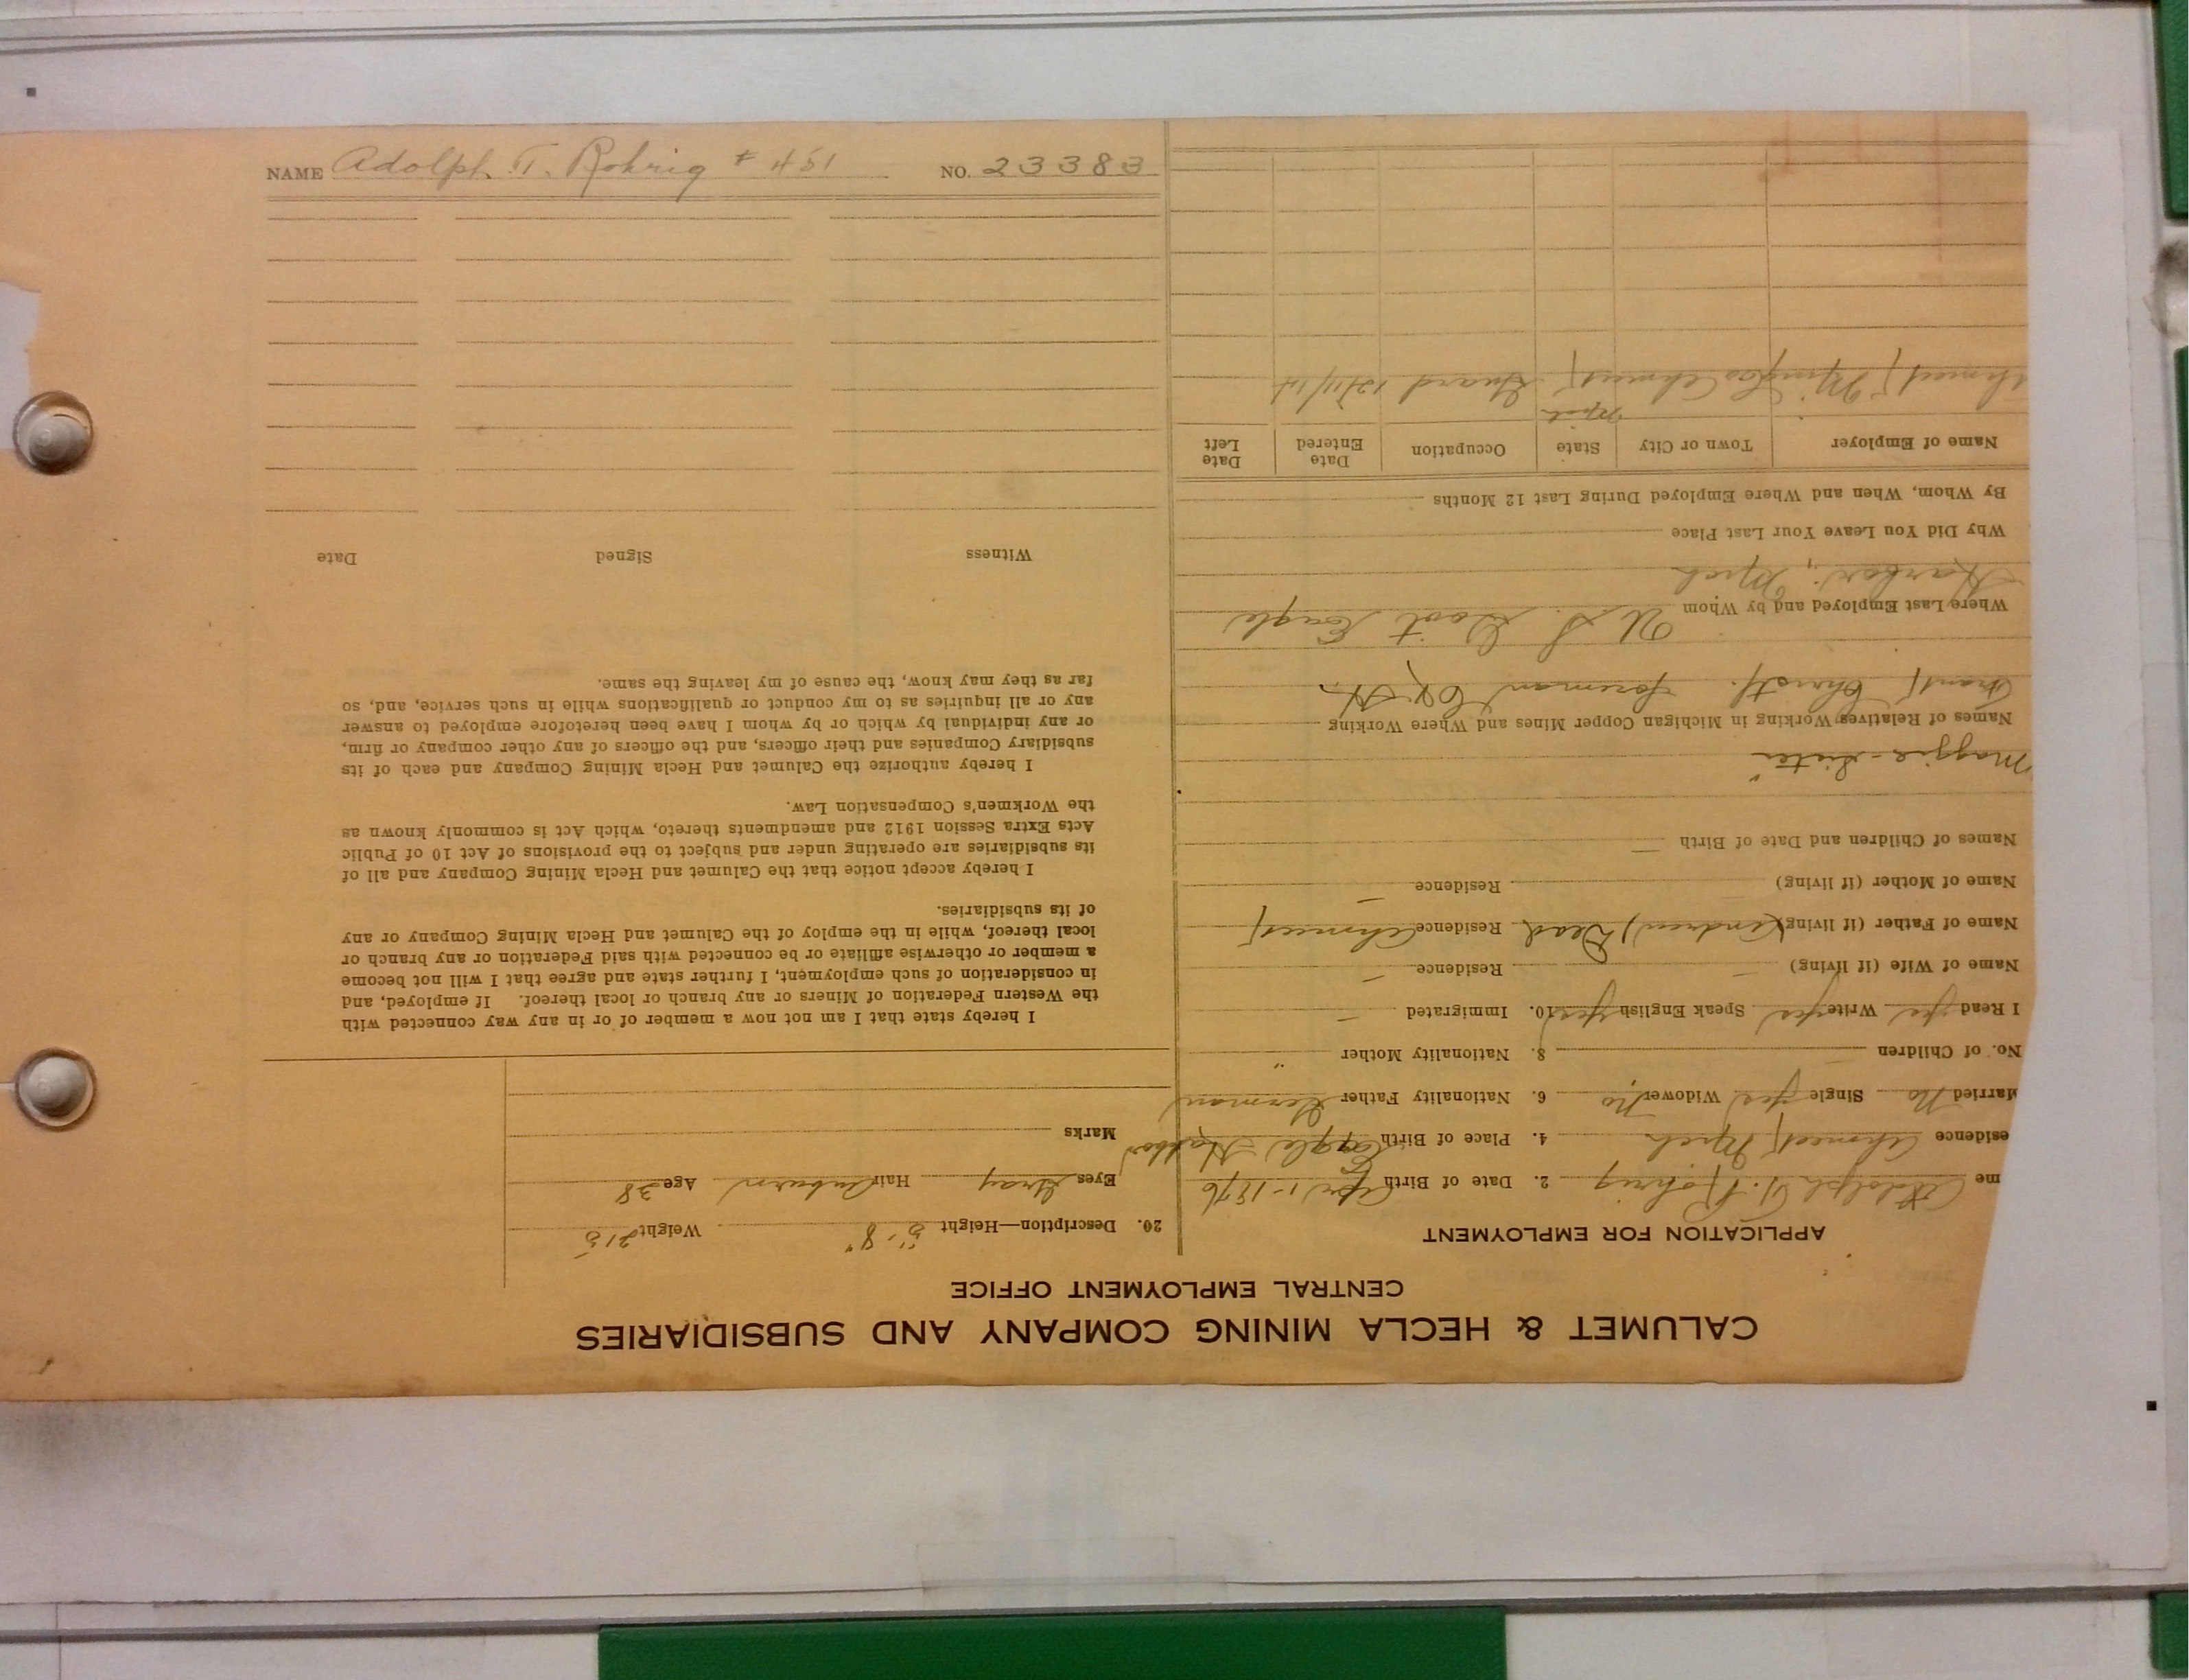 CALUMET & HECLA MINING COMPANY AND SUBSIDIARIES
CENTRAL EMPLOYMENT OFFICE
APPLICATION FOR EMPLOYMENT
me Adolph T. Rohrig 2. Date of Birth Apr 1-1876
esidence Ahmeek Mich 4. Place of Birth Eagle Harbor
Married No Single yes Widower No 6. Nationality Father German
No. of Children 8. Nationality Mother "
I Read yes Write yes Speak English yes 10. Immigrated —
Name of Wife (if living) — Residence —
Name of Father (if living) (Andrew) Dead Residence Ahmeek
Name of Mother (if living) Residence —
Names of Children and Date of Birth —
Maggie - Sister
Names of Relatives Working in Michigan Copper Mines and Where Working
Frank Christ. foreman C & H.
Where Last Employed and by Whom U S Govt Eagle
Harbor, Mich
Why Did You Leave Your Last Place
By Whom, When and Where Employed During Last 12 Months
Name of Employer Town or City State Occupation Date Entered Date Left
Ahmeek Mining Co Ahmeek Mich Guard 12/11/14
20. Description—Height 5'-8" Weight 215
Eyes Gray Hair Auburn Age 38
Marks
I hereby state that I am not now a member of or in any way connected with
the Western Federation of Miners or any branch or local thereof. If employed, and
in consideration of such employment, I further state and agree that I will not become
a member or otherwise affiliate or be connected with said Federation or any branch or
local thereof, while in the employ of the Calumet and Hecla Mining Company or any
of its subsidiaries.
I hereby accept notice that the Calumet and Hecla Mining Company and all of
its subsidiaries are operating under and subject to the provisions of Act 10 of Public
Acts Extra Session 1912 and amendments thereto, which Act is commonly known as
the Workmen's Compensation Law.
I hereby authorize the Calumet and Hecla Mining Company and each of its
subsidiary Companies and their officers, and the officers of any other company or firm,
or any individual by which or by whom I have been heretofore employed to answer
any or all inquiries as to my conduct or qualifications while in such service, and, so
far as they may know, the cause of my leaving the same.
Witness Signed Date
NAME Adolph T. Rohrig # 451 NO. 23383